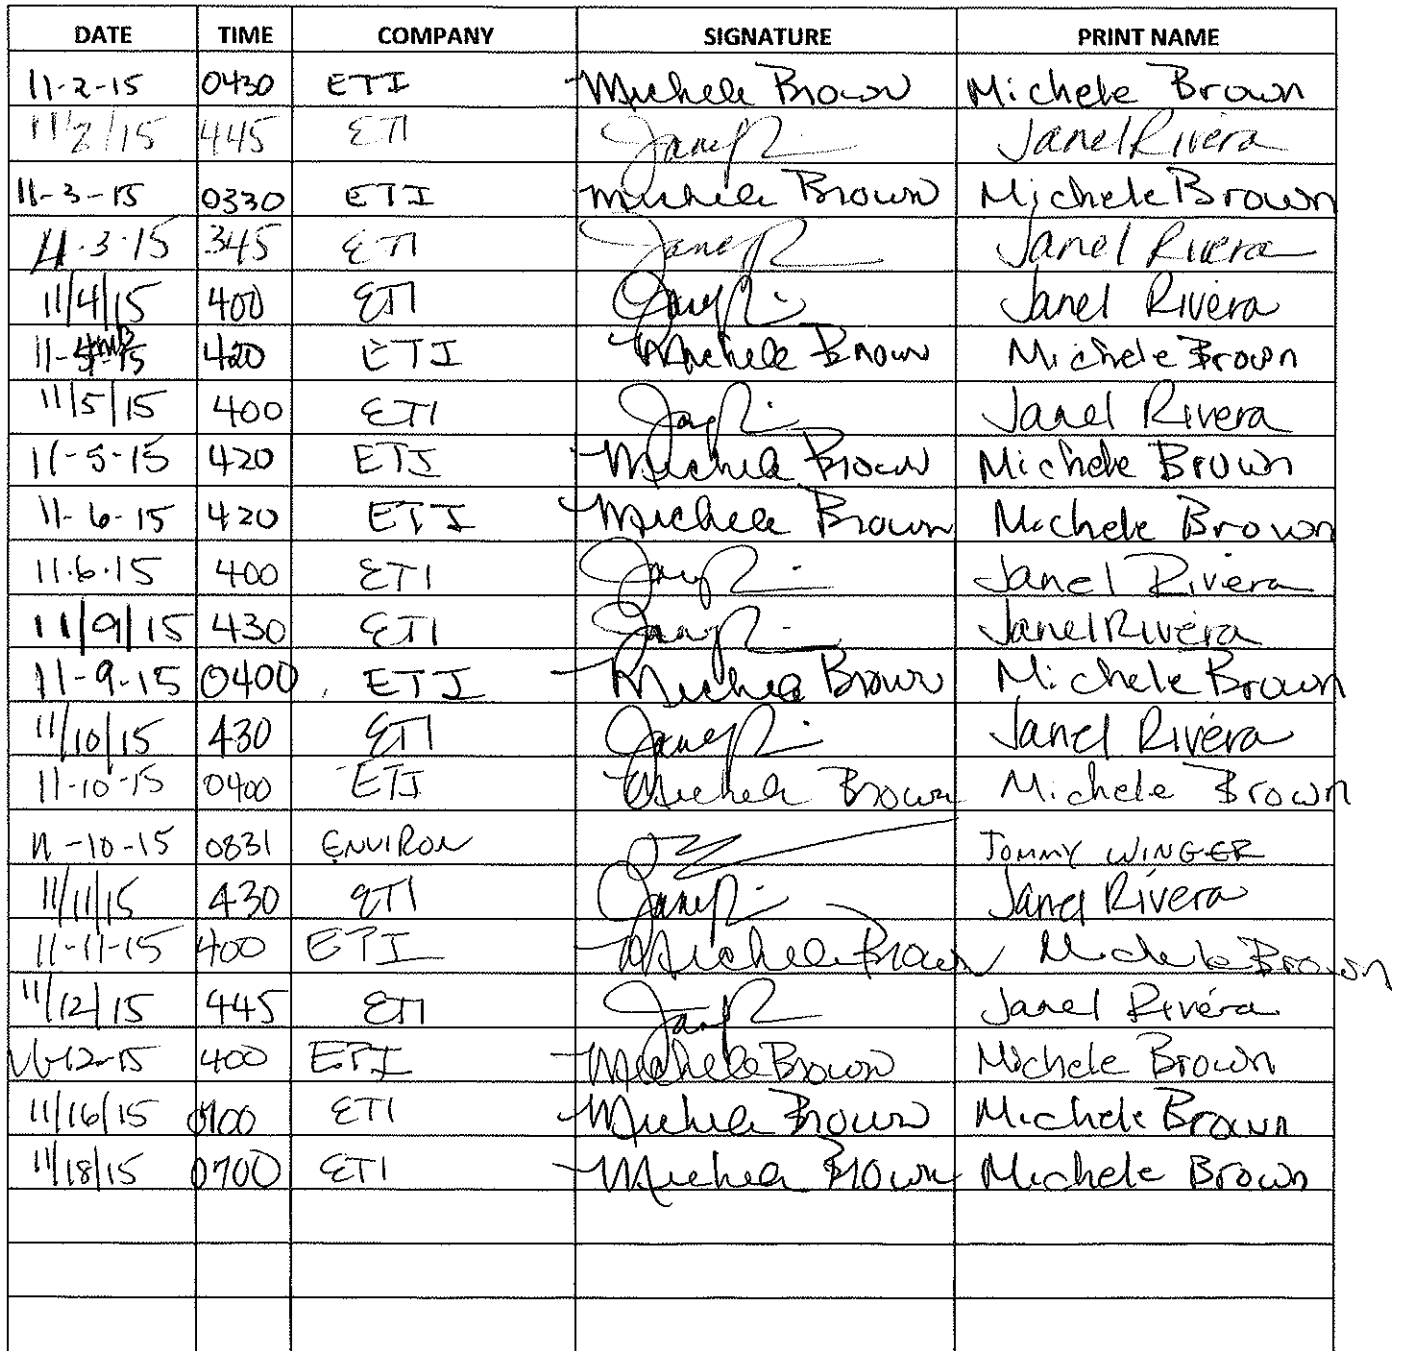 DATE TIME COMPANY SIGNATURE PRINT NAME
11-2-15 0430 ETI Michele Brown Michele Brown
11/2/15 445 ETI Janel Rivera
11-3-15 0330 ETI Michele Brown Michele Brown
11.3.15 345 ETI Janel Rivera
11/4/15 400 ETI Janel Rivera
11- -15 420 ETI Michele Brown Michele Brown
11/5/15 400 ETI Janel Rivera
11-5-15 420 ETI Michele Brown Michele Brown
11-6-15 420 ETI Michele Brown Michele Brown
11.6.15 400 ETI Janel Rivera
11/9/15 430 ETI Janel Rivera
11-9-15 0400 ETI Michele Brown Michele Brown
11/10/15 430 ETI Janel Rivera
11-10-15 0400 ETI Michele Brown Michele Brown
11-10-15 0831 ENVIRON TOMMY WINGER
11/11/15 430 ETI Janel Rivera
11-11-15 400 ETI Michele Brown Michele Brown
11/12/15 445 ETI Janel Rivera
11-12-15 400 ETI Michele Brown Michele Brown
11/16/15 0700 ETI Michele Brown Michele Brown
11/18/15 0700 ETI Michele Brown Michele Brown